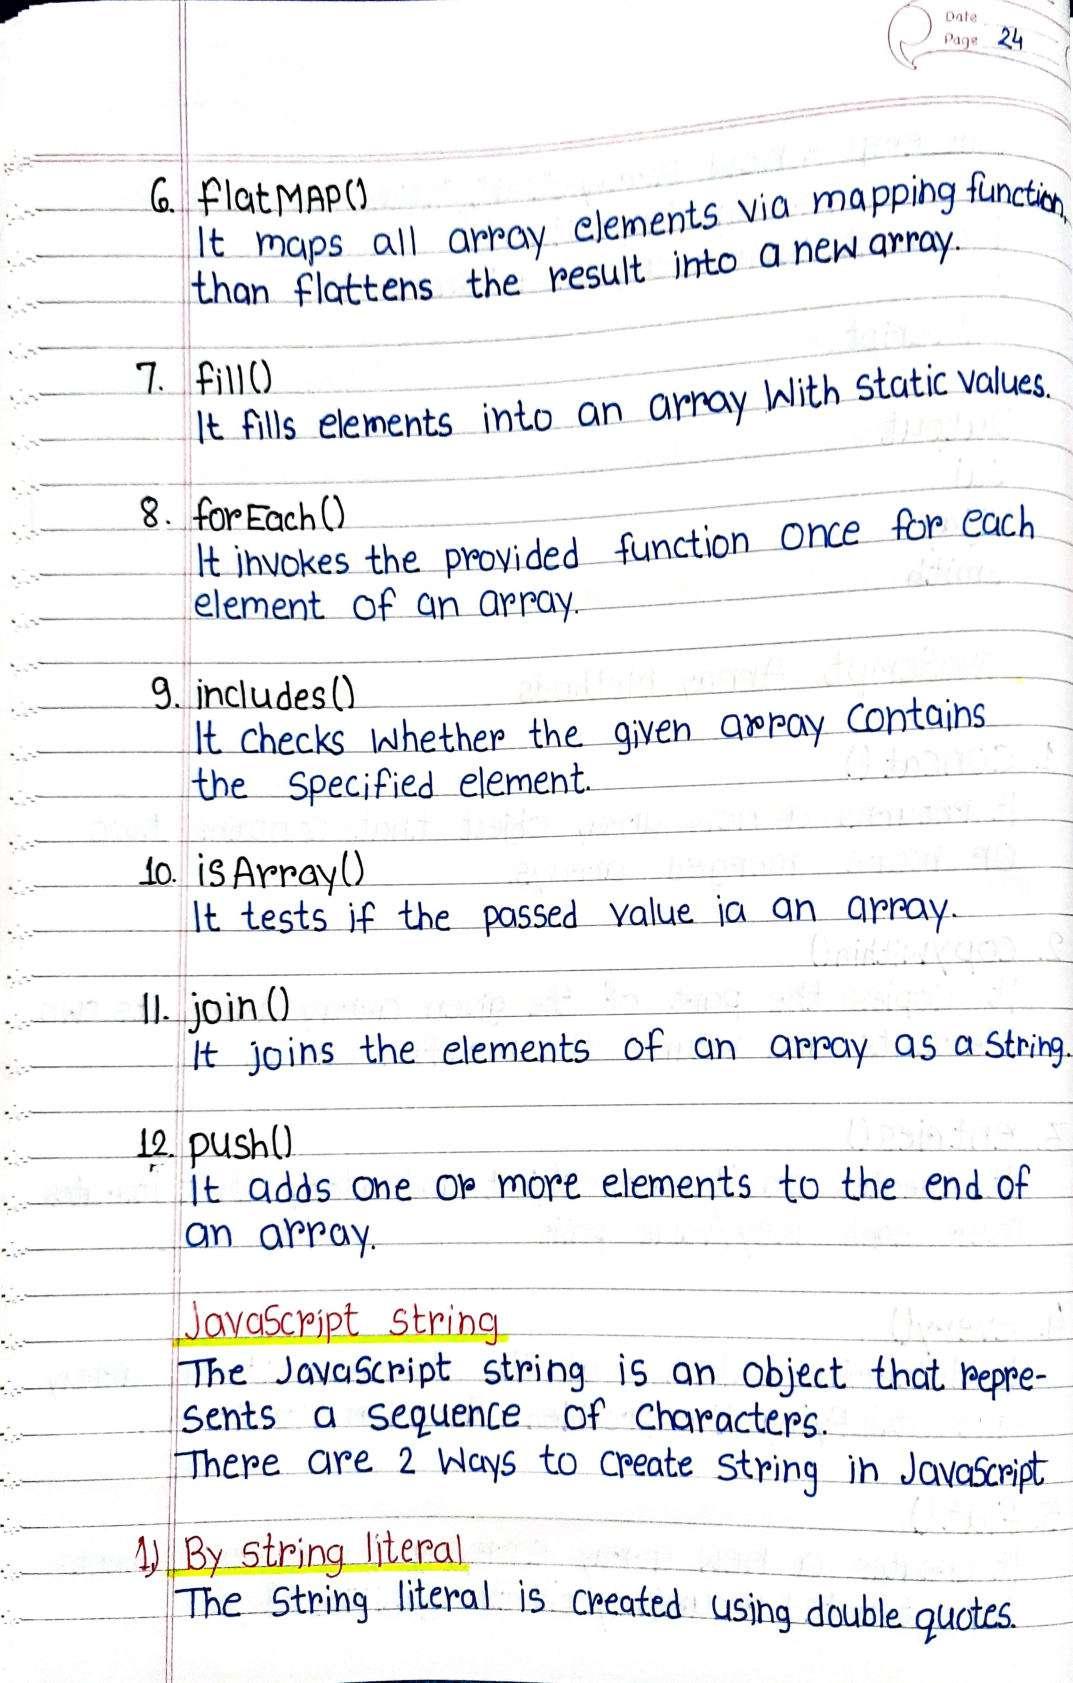 Date
Page 24
6. flatMAP()
It maps all array elements via mapping function,
than flattens the result into a new array.
7. fill()
It fills elements into an array With static values.
8. forEach()
It invokes the provided function once for each
element of an array.
9. includes()
It checks whether the given array contains
the specified element.
10. isArray()
It tests if the passed value ia an array.
11. join()
It joins the elements of an array as a string.
12. push()
It adds one or more elements to the end of
an array.
JavaScript string
The JavaScript string is an object that repre-
sents a sequence of characters.
There are 2 ways to create string in JavaScript
1) By string literal
The String literal is created using double quotes.